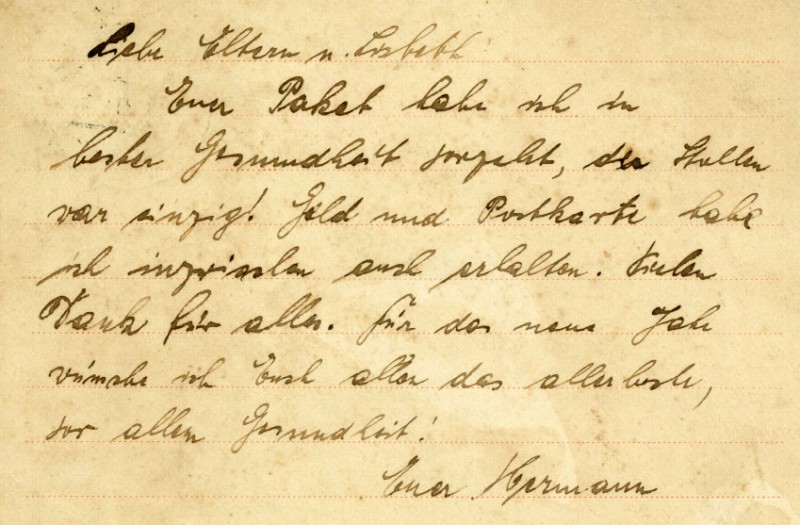 Liebe Eltern u. Lisbeth
Euer Paket habe ich in
bester Gesundheit verzehrt, der Stollen
war einzig! Geld und Postkarte habe
ich inzwischen auch erhalten. Vielen
Dank für alles. Für das neue Jahr
wünsche ich Euch allen das allerbeste,
vor allem Gesundheit!
Euer Hermann